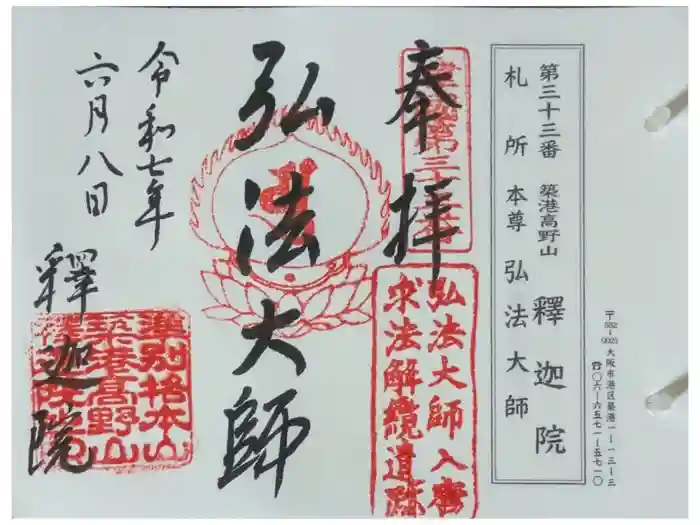 第三十三番 築港高野山 釋迦院
札所本尊 弘法大師
〒552-0021 大阪市港区築港一ー一三ー三
☎〇六ー六五七一ー五七一〇
奉拝
第三十三番
弘法大師入唐
求法解纜遺跡
弘法大師
令和七年
六月八日
釋迦院
準別格本山
築港高野山
釋迦院